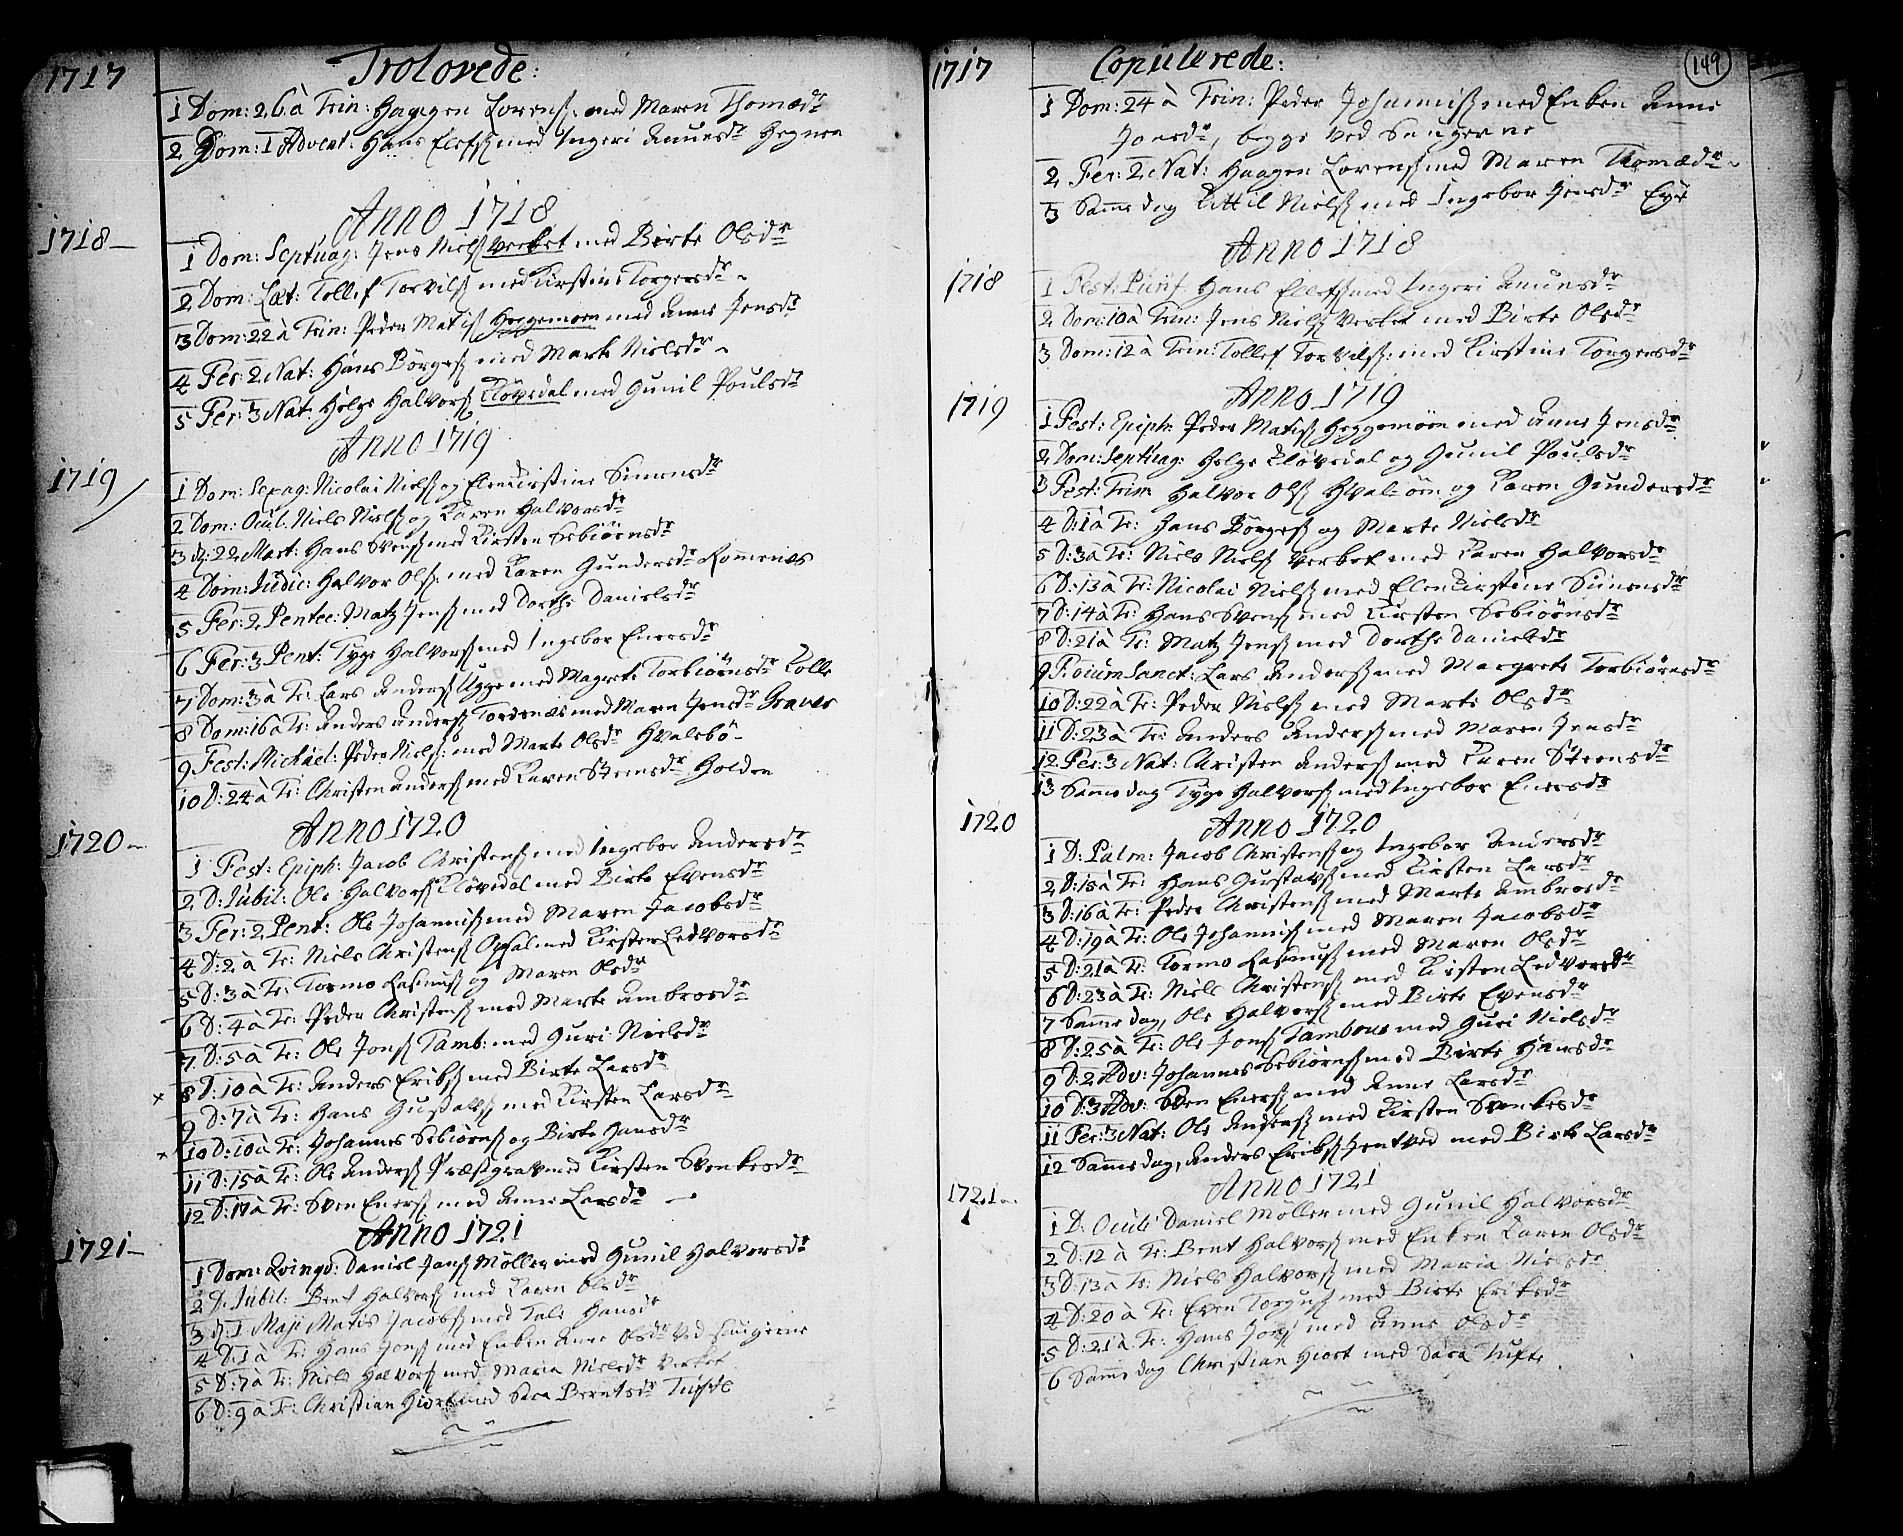 1717 Trolovede:
1 Dom: 26 à Trin: Haagen Lorens: med Maren Thomæd:r
2 Dom: 1 Advent: Hans Elefs: med Ingeri Amunsd:r Hegnen
Anno 1718
1718
1 Dom: Septuag: Jens Niels: Verket med Birte Olsd:r
2 Dom: Læt: Tollef Torvils: med Kirstine Torgersd:r
3 Dom: 22 à Trin: Peder Matis: Heggemoen med Anne Jensd:r
4 Fer: 2 Nat: Hans Børges: med Marte Nielsd:r
5 Fer: 3 Nat: Helge Halvors: Kløvedal med Gunil Poulsd:r
Anno 1719
1719
1 Dom: Sexag: Nicolai Niels: og Elen Kirstine Simensd:r
2 Dom: Ocul: Niels Niels: og Karen Halvorsd:r
3 d: 22 Mart: Hans Svens: med Kirsten Sebiørnsd:r
4 Dom: Judic: Halvor Ols: med Karen Gundersd:r Romenæs
5 Fer: 2 Pentec: Matz Jens: med Dorthe Danielsd:r
6 Fer: 3 Pent: Tyge Halvors: med Ingebor Enersd:r
7 Dom: 3 à Tr: Lars Anders: Ugge med Magrete Torbiørnsd:r Kolle
8 Dom: 16 à Tr: Anders Anders: Tordenæs med Maren Jensd:r Graver
9 Fest: Michael: Peder Niels: med Marte Olsd:r Hvalebö
10 D: 24 à Tr: Christen Anders: med Karen Steensd:r Holden
Anno 1720
1720
1 Fest: Epiph: Jacob Christens: med Ingebor Andersd:r
2 D: Jubil: Ole Halvors: Kløvedal med Birte Evensd:r
3 Fer: 2 Pent: Ole Johannis: med Maren Jacobsd:r
4 D: 2 à Tr: Niels Christens: Opsal med Kirsten Ledvorsd:r
5 D: 3 à Tr: Tormo Rasmus: og Maren Olsd:r
6 D: 4 à Tr: Peder Christens: med Marte Ambrosd:r
7 D: 5 à Tr: Ole Jons: Tamb: med Guri Nielsd:r
8 D: 10 à Tr: Anders Eriks: med Birte Larsd:r
9 D: 7 à Tr: Hans Gustavs: med Kirsten Larsd:r
10 D: 10 à Tr: Johannes Sebiørns: og Birte Hansd:r
11 D: 15 à Tr: Ole Anders: Præstgrav med Kirsten Svenkesd:r
12 D: 17 à Tr: Sven Eners: med Anne Larsd:r
Anno 1721
1721
1 Dom: Qvinqv: Daniel Jans: Møller med Gunil Halvorsd:r
2 D. Jubil: Bent Halvors: med Karen Olsd:r
3 d: 1 Maji Matis Jacobs: med Kale Hansd:r
4 D: 1 à Tr: Hans Jons: med Enken Anne Olsd:r ved Saugerne
5 D: 7 à Tr: Niels Halvors: med Maria Nielsd:r Verket
6 D: 9 à Tr: Christian Hiort med Sara Berntsd:r
1717 Copulerede: 149
1 Dom: 24 à Trin: Peder Johannis: med Enken Anne
Jonsd:r, begge ved Saugerne
2 Fer: 2 Nat: Haagen Lorens: med Maren Thomæd:r
3 Samme dag Kittil Niels: med Ingebor Jensd:r
Anno 1718
1718
1 Fest: Purif Hans Elefs: med Ingeri Amunsd:r
2 Dom: 10 à Trin: Jens Niels: Verket med Birte Olsd:r
3 Dom: 12 à Trin: Tollef Torvils: med Kirstine Torgersd:r
Anno 1719
1719
1 Fest: Epiph: Peder Matis: Heggemoen med Anne Jensd:r
2 Dom: Septuag: Helge Kløvedal og Gunil Poulsd:r
3 Fest: Trin Halvor Ols: Hvalöen og Karen Gundersd:r
4 D: 1 à Tr: Hans Börges: og Marte Nielsd:r
5 D: 3 à Tr: Niels Niels: Verket med Karen Halvorsd:r
6 D: 13 à Tr: Nicolai Niels: med Elen Kirstine Simensd:r
7 D: 14 à Tr: Hans Svens: med Kirsten Sebiörnsd:r
8 D: 21 à Tr: Matz Jens: med Dorthe Danielsd:r
9 F: Oium Sanct: Lars Anders: med Margrete Torbiörnsd:r
10 D: 22 à Tr: Peder Niels: med Marte Olsd:r
11 D: 23 à Tr: Anders Anders: med Maren Jensd:r
12 Fer: 3 Nat: Christen Anders: med Karen Steensd:r
13 Samme dag Tyge Halvors: med Ingebor Enersd:r
Anno 1720
1720
1 D: Palm: Jacob Christens: og Ingebor Andersd:r
2 D: 15 à Tr: Hans Gustavs: med Kirsten Larsd:r
3 D: 16 à Tr: Peder Christens: med Marte Ambrosd:r
4 D: 19 à Tr: Ole Johannis: med Maren Jacobsd:r
5 D: 21 à Tr: Tormo Rasmus: med Maren Olsd:r
6 D: 23 à Tr: Niels Christens: med Kirsten Ledvorsd:r
7 Samme dag, Ole Halvors: med Birte Evensd:r
8 D: 25 à Tr: Ole Jons: Tambour med Guri Nielsd:r
9 D: 2 Adv: Johannes Sebiörns: med Birte Hansd:r
10 D: 3 Adv: Sven Eners: med Anne Larsd:r
11 Fer: 3 Nat: Ole Anders: med Kirsten Svenkesd:r
12 Samme dag, Anders Eriks: Jentved med Birte Larsd:r
Anno 1721
1721
1 D. Oculi Daniel Möller med Gunil Halvorsd:r
2 D: 12 à Tr: Bent Halvors: med Enken Karen Olsd:r
3 D: 13 à Tr: Niels Halvors: med Maria Nielsd:r
4 D: 20 à Tr: Even Torgus: med Birte Eriksd:r
5 D: 21 à Tr: Hans Jons: med Anne Olsd:r
6 Samme dag Christian Hiort med Sara Tufte